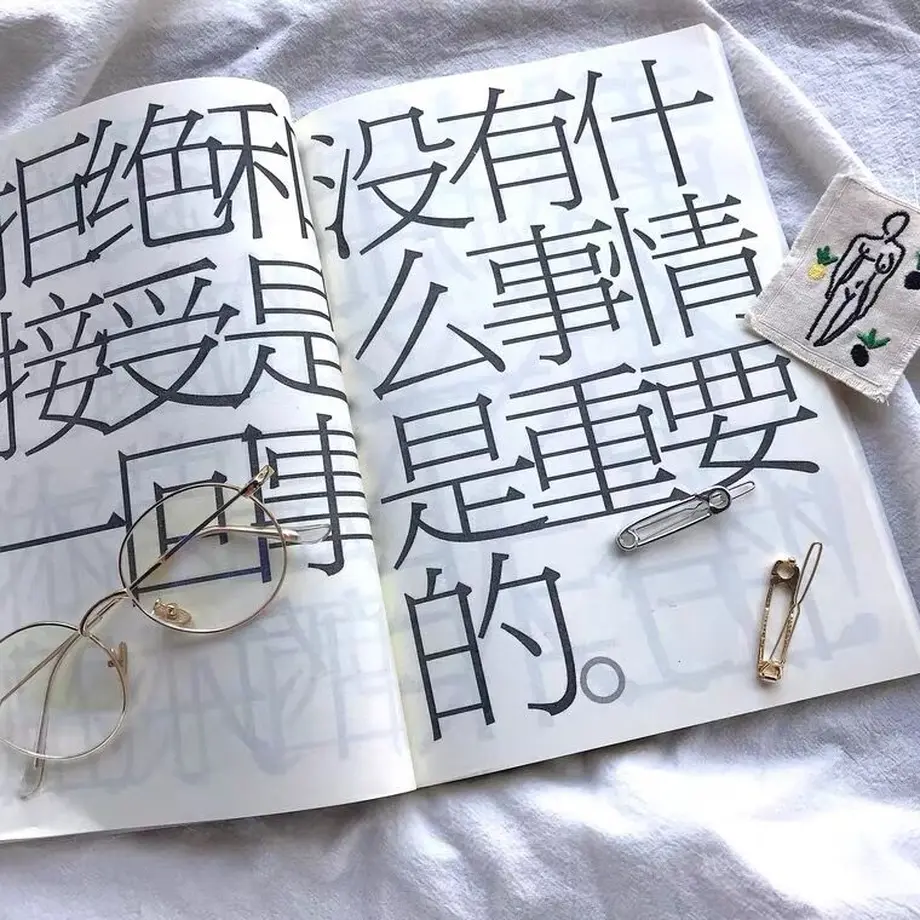 拒绝和
接受是
一回事
没有什
么事情
是重要
的。